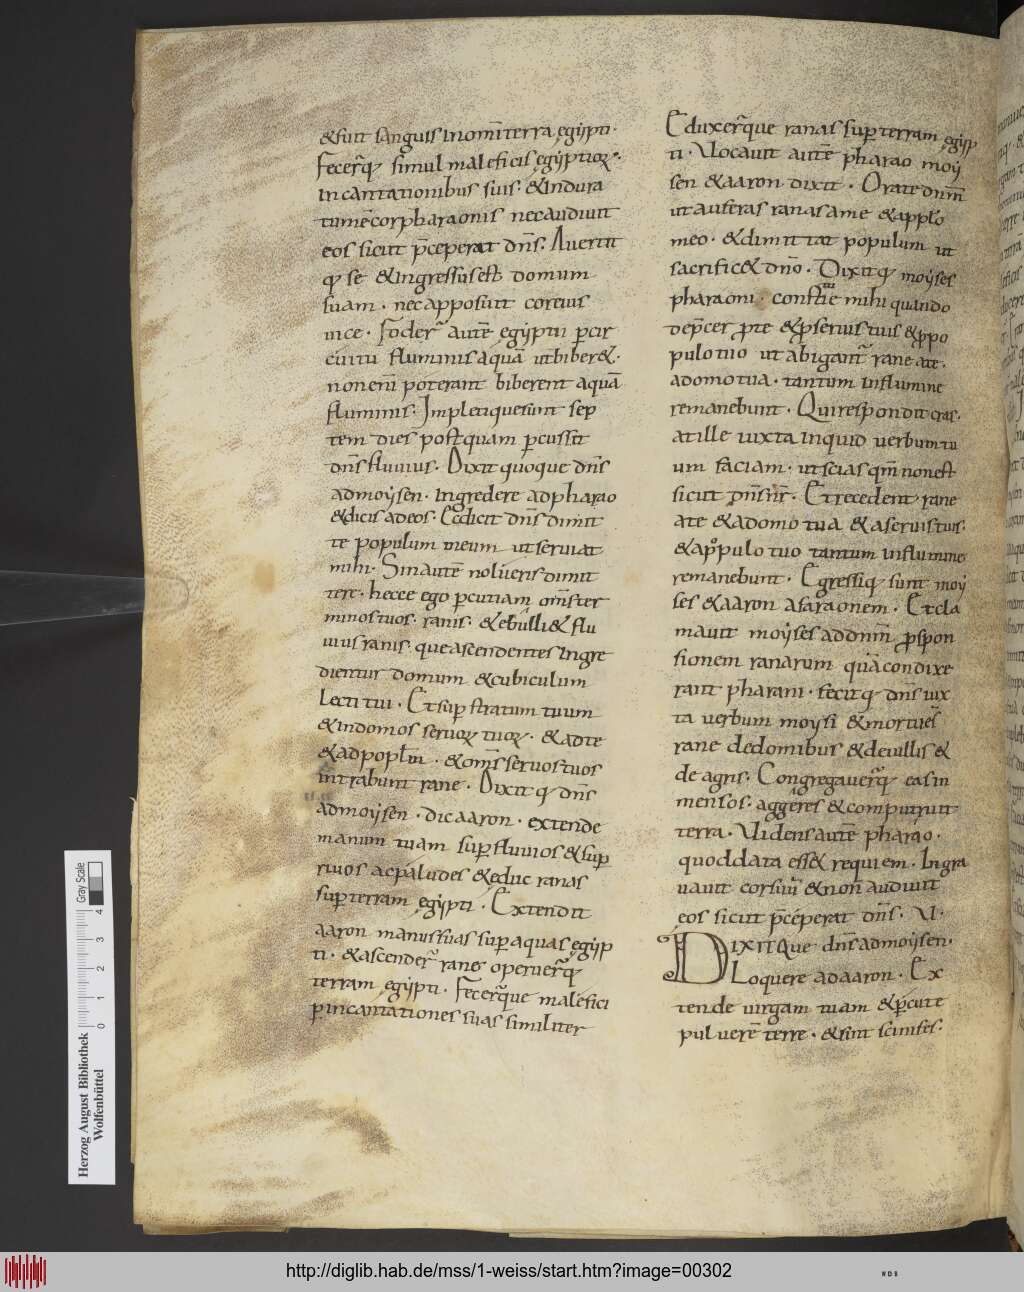 & fuit sanguis in omīterra egipti·
Fecerq̄ simul malefici egiptioꝝ·
incantationibus suis· & indura
tumē cor pharaonis nec audiuit
eos sicut p̄ceperat dn̄s· Auertit
q; se & ingressus est domum
suam· nec apposuit cor eius
vice· Foder̄ autē egiptii ꝑ cir
cuitu fluminis aquā ut biber&·
non enī poterant biberent aquā
fluminis· Impletiquesunt sep
tem dies postquam ꝑcussit
dn̄s fluuius· Dixit quoque dn̄s
admoysen· Ingredere ad pharao
& dicis ad eos· Ec dicit dn̄s dimit
te populum meum ut seruiat
mihi· Sin autē nolueris dimit
tere· hecce ego ꝑcutiam om̄s ter
minos tuos· ranis· & ebulli& flu
uius ranis· que ascendentes ingre
dientur domum & cubiculum
lecti tui· Et suꝑ stratum tuum
& indomos seruoꝝ tuoꝝ· & ad te
& ad poplm̄· & om̄s seruos tuos
intrabunt rane· Dixit q; dn̄s
admoysen· dic aaron· extende
manum tuam suꝑ fluuios & suꝑ
riuos ac paludes & educ ranas
suꝑ terram egipti· Extendit
aaron manus suas suꝑ aquas egiip
ti· & ascender̄ rane operuer̄q;
terram egipti· Fecer̄que malefici
ꝑ incantationes suas similiter
Eduxer̄que ranas suꝑ terram egiip
ti· Vocauit autē pharao moy
sen & aaron dixit· Orate dnm̄
ut auferas ranas ame & app̄lo
meo· & dimittat populum ut
sacrific& dn̄o· Dixit q; moyses
pharaoni· constitue mihi quando
dep̄cer ꝓ te & ꝓ seruis tuis & ꝓ po
pulo tuo ut abigant̄ rane ate·
adomo tua· tantum influmine
remanebunt· Qui respondit cras·
at ille iuxta inquid uerbum tu
um faciam· ut scias qm̄ non est
sicut dn̄s nr̄· Et recedent· rane
ate & adomo tua & aseruis tuis·
& apopulo tuo tantum influmine
remanebunt· Egressiq; sunt moy
ses & aaron afaraonem· Et cla
mauit moyses ad dnm̄ ꝓ spon
sionem ranarum quā condixe
rant pharani· fecit q; dn̄s iux
ta uerbum moysi & mortues
rane de domibus & de uillis &
de agris· Congregauer̄q; eas in
mensos· aggeres & computruit
terra· Uidens autē pharao·
quod data ess& requiem· Ingra
uauit cor suū & non audiuit
eos sicut p̄ceperat dn̄s· V·
Dixitque dn̄s admoysen·
Loquere ad aaron· Ex
tende uirgam tuam & ꝑcute
puluerē terre· & sint scinifes·
Herzog August Bibliothek
Wolfenbüttel
Gray Scale
0 1 2 3 4
http://diglib.hab.de/mss/1-weiss/start.htm?image=00302